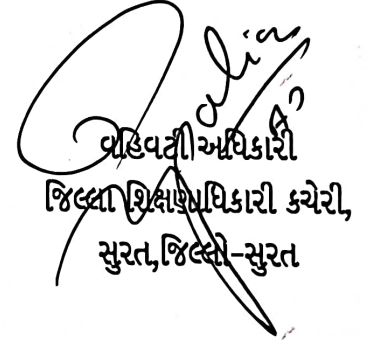 વહિવટી અધિકારી
જિલ્લા શિક્ષણાધિકારી કચેરી,
સુરત,જિલ્લો-સુરત